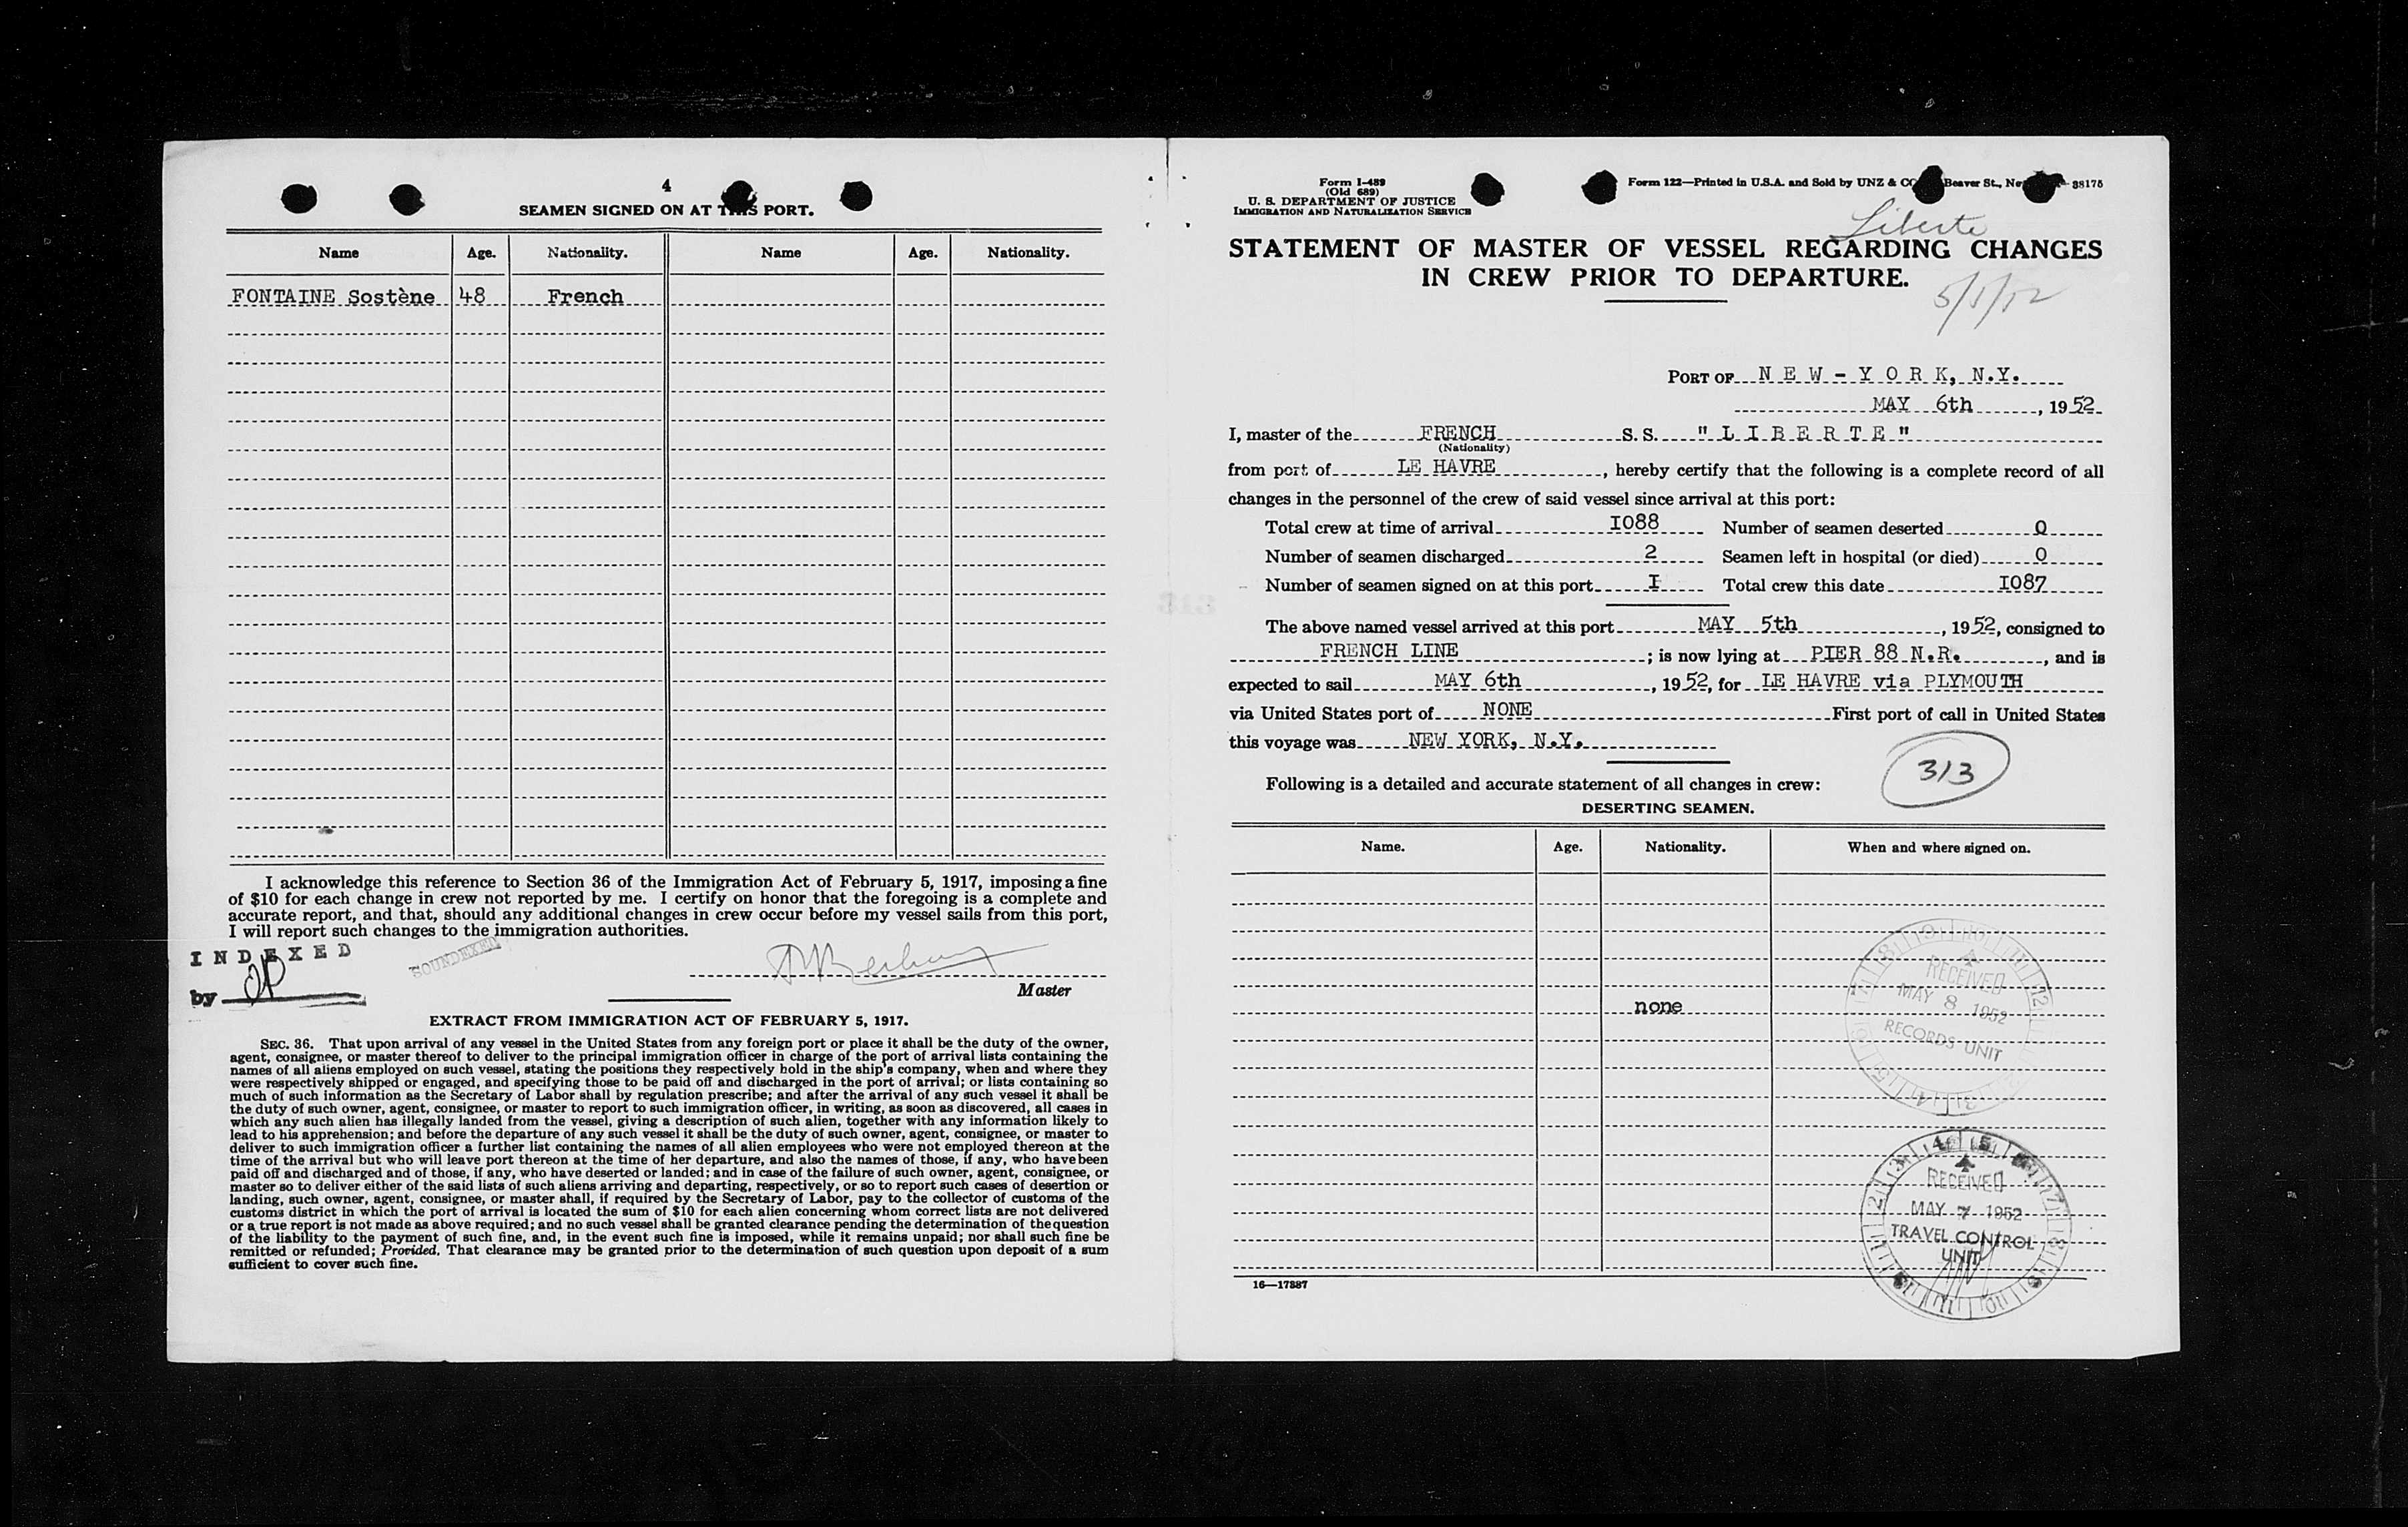 4
SEAMEN SIGNED ON AT THIS PORT.
Name Age. Nationality. Name Age. Nationality.
FONTAINE Sostène 48 French
I acknowledge this reference to Section 36 of the Immigration Act of February 5, 1917, imposing a fine
of $10 for each change in crew not reported by me. I certify on honor that the foregoing is a complete and
accurate report, and that, should any additional changes in crew occur before my vessel sails from this port,
I will report such changes to the immigration authorities.
INDEXED
SOUNDEXED
by
Master
EXTRACT FROM IMMIGRATION ACT OF FEBRUARY 5, 1917.
SEC. 36. That upon arrival of any vessel in the United States from any foreign port or place it shall be the duty of the owner,
agent, consignee, or master thereof to deliver to the principal immigration officer in charge of the port of arrival lists containing the
names of all aliens employed on such vessel, stating the positions they respectively hold in the ship's company, when and where they
were respectively shipped or engaged, and specifying those to be paid off and discharged in the port of arrival; or lists containing so
much of such information as the Secretary of Labor shall by regulation prescribe; and after the arrival of any such vessel it shall be
the duty of such owner, agent, consignee, or master to report to such immigration officer, in writing, as soon as discovered, all cases in
which any such alien has illegally landed from the vessel, giving a description of such alien, together with any information likely to
lead to his apprehension; and before the departure of any such vessel it shall be the duty of such owner, agent, consignee, or master to
deliver to such immigration officer a further list containing the names of all alien employees who were not employed thereon at the
time of the arrival but who will leave port thereon at the time of her departure, and also the names of those, if any, who have been
paid off and discharged and of those, if any, who have deserted or landed; and in case of the failure of such owner, agent, consignee, or
master so to deliver either of the said lists of such aliens arriving and departing, respectively, or so to report such cases of desertion or
landing, such owner, agent, consignee, or master shall, if required by the Secretary of Labor, pay to the collector of customs of the
customs district in which the port of arrival is located the sum of $10 for each alien concerning whom correct lists are not delivered
or a true report is not made as above required; and no such vessel shall be granted clearance pending the determination of the question
of the liability to the payment of such fine, and, in the event such fine is imposed, while it remains unpaid; nor shall such fine be
remitted or refunded; Provided, That clearance may be granted prior to the determination of such question upon deposit of a sum
sufficient to cover such fine.
Form I-489
(Old 689)
U. S. DEPARTMENT OF JUSTICE
IMMIGRATION AND NATURALIZATION SERVICE
Form 122—Printed in U.S.A. and Sold by UNZ & CO Beaver St., 38175
Liberte
STATEMENT OF MASTER OF VESSEL REGARDING CHANGES
IN CREW PRIOR TO DEPARTURE.
PORT OF NEW-YORK, N.Y.
MAY 6th, 1952
I, master of the FRENCH S. S. "LIBERTE"
(Nationality)
from port of LE HAVRE, hereby certify that the following is a complete record of all
changes in the personnel of the crew of said vessel since arrival at this port:
Total crew at time of arrival I088 Number of seamen deserted 0
Number of seamen discharged 2 Seamen left in hospital (or died) 0
Number of seamen signed on at this port I Total crew this date I087
The above named vessel arrived at this port MAY 5th, 1952, consigned to
FRENCH LINE; is now lying at PIER 88 N.R., and is
expected to sail MAY 6th, 1952, for LE HAVRE via PLYMOUTH
via United States port of NONE First port of call in United States
this voyage was NEW YORK, N.Y.
313
Following is a detailed and accurate statement of all changes in crew:
DESERTING SEAMEN.
Name. Age. Nationality. When and where signed on.
none
RECEIVED
MAY 8 1952
RECORDS UNIT
RECEIVED
MAY 7 1952
TRAVEL CONTROL
UNIT
16—17887